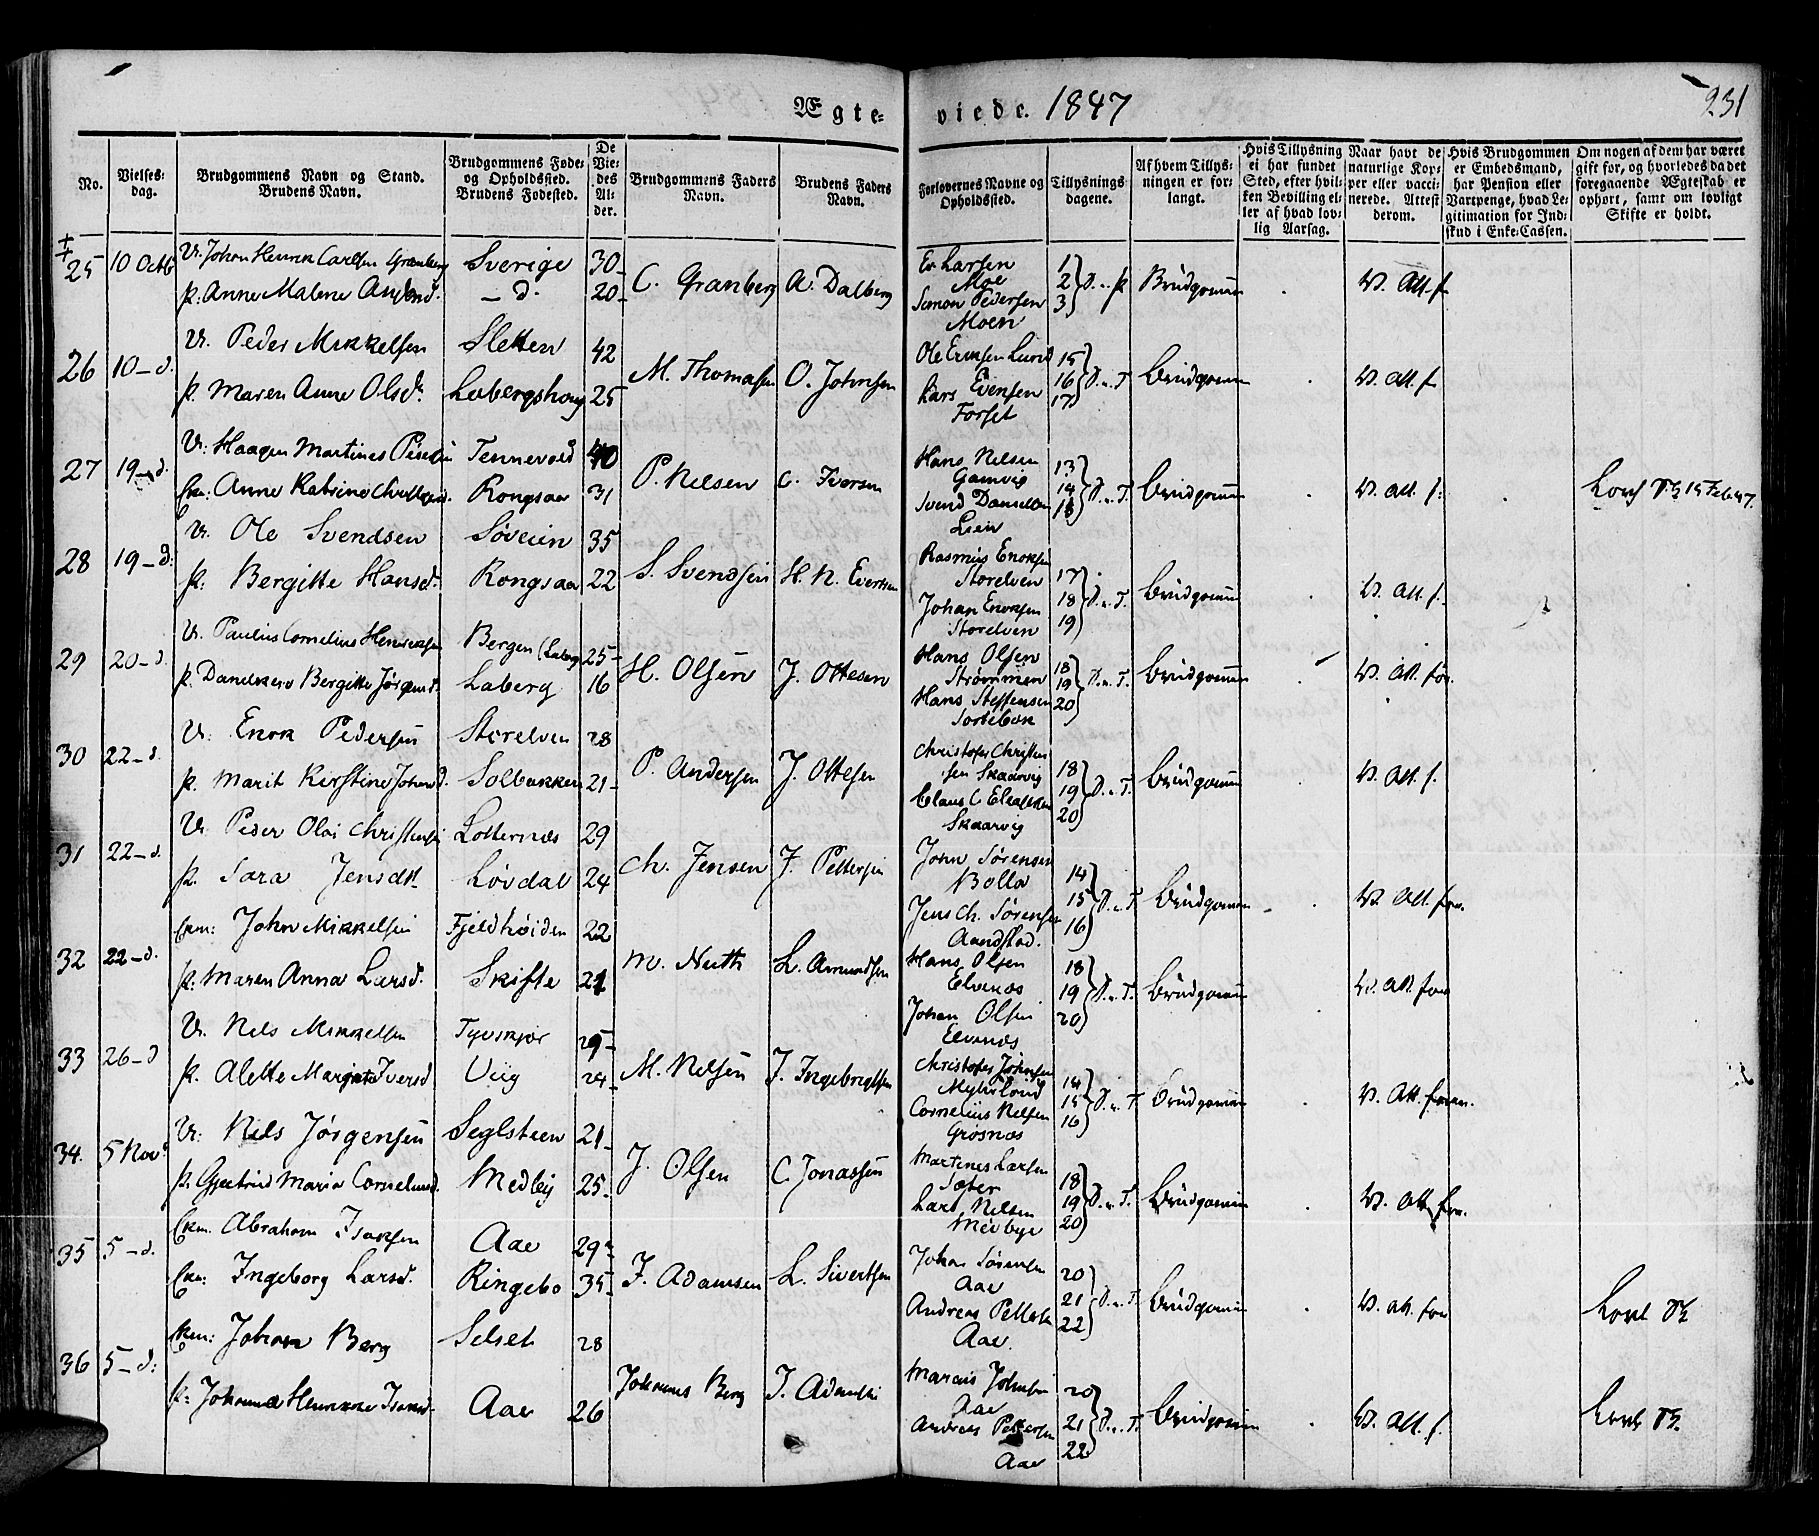 Ægte-
viede. 1847
231
No.
Vielses-
dag.
Brudgommens Navn og Stand.
Brudens Navn.
Brudgommens Føde-
og Opholdssted.
Brudens Fødested.
De
Vie-
des
Al-
der.
Brudgommens Faders
Navn.
Brudens Faders
Navn.
Forlovernes Navne og
Opholdssted.
Tillysnings
dagene.
Af hvem Tillys-
ningen er for-
langt.
Hvis Tillysning
ei har fundet
Sted, efter hvil-
ken Bevilling el-
ler af hvad lov-
lig Aarsag.
Naar havt de
naturlige Kop-
per eller vacci-
nerede. Attest
derom.
Hvis Brudgommen
er Embedsmand,
har Pension eller
Vartpenge, hvad Le-
gitimation for Ind-
skud i Enke-Cassen.
Om nogen af dem har været
gift før, og hvorledes da det
foregaaende Ægteskab er
ophørt, samt om lovligt
Skifte er holdt.
25 10 Octb
U. Johan Henrik Carlsen Granberg Sverige 30
p. Anne Malene Andersd. — d. 20
C. Granberg A. Dalberg
Ev Larsen
Moe
Simon Pedersen
Moen
1
2
3
D. p
Brudgommen
V. Att. f
26 10 — d.
U. Peder Mikkelsen Sletten 42
p. Maren Anne Olsdr. Labergshoug 25
M. Thomassen O. Johnsen
Ole Eriksen Lund
Lars Evensen
Forset
15
16
17
D. u. T
Brudgommen
V. Att. f
27 19 — d.
U. Haagen Martines Tennevold 40
Enk: Anne Katrine Rongsaa 31
P. Nelsen C. Iversen
Hans Nelsen
Gamvig
Svend Danielsen
Lien
13
14
D. u. T.
Brudgommen
V. Att. f.
28 19 — d.
U. Ole Svendsen Søveien 35
p. Bergitte Hansd. Rongsaa 22
S. Svendsen H. N. Evertsen
Rasmus Enoksen
Storelven
Johan Enoksen
Storelven
17
18
19
D. u. T.
Brudgommen
V. Att. f.
29 20 — d.
U. Paulus Cornelius Henriksen Bergen (Laberg 25
p. Danelkem Bergitte Jørgensd. Laberg 16
H. Olsen J. Ottesen
Hans Olsen
Strømmen
Hans Steffensen
Sortebek
18
19
20
D. u. T.
Brudgommen
V. Att. for.
30 22 — d.
U. Enok Pedersen Storelven 28
p. Marit Kirstine Johansd. Solbakken 21
P. Andersen J. Ottesen
Christofer Christen
sen Skaarvig
Claus C Eliassen
Skaarvig
18
19
20
D. u. T.
Brudgommen
V. Att. f.
31 22 — d.
U. Peder Olai Christensen Lotternæs 29
p. Sara Jensdtr Løvdal 24
Ch. Jensen J. Pettersen
John Sørensen
Bolla
Jens Ch. Sørensen
Aandstad.
14
15
16
D. u. T
Brudgommen
V. Att. for.
32 22 — d.
Enkm: John Mikkelsen Fjeldhøiden 22
p. Maren Anna Larsd. Skifte 21
M. Nuth L. Amundsen
Hans Olsen
Elvenæs
Johan Olsen
Elvenæs
18
19
20
D. u. T.
Brudgommen
V. Att. for
33 26 — d
U. Nels Mikkelsen Tyvskjær 25
p. Alette Margrete Iversd. Viig 24
M. Nelsen I. Ingebrigtsen
Christofer Johnsen
Myrlund
Cornelius Nelsen
Grøsnæs
14
15
16
D. u. T
Brudgommen
V. Att. foran.
34. 5 Novr
U. Nils Jørgensen Seglsteen 21
p. Gjertrud Maria Corneliusd. Medbÿ 25
J. Olsen C. Jonassen
Martines Larsen
Sæter
Lars Nelsen
Medbye
18
19
20
D. u. T.
Brudgommen
V. Att for.
35 5 — d.
Enkm. Abraham Isaksen Aae 29
Enk: Ingeborg Larsd. Ringebo 35
I. Adamsen L. Sivertsen
Johan Sørensen
Aae
Andreas Petter
Aae.
20
21
22
D. u. T
Brudgommen
V. Att. for
36 5 — d:
Enkm: Johan Berg Selset 28
p: Johanna Henrikke Isaksd. Aae 26
Johannes Berg I. Adamsen
Marius Johnsen
Aae
Andreas Pettersen
Aae
20
21
22
D. u. T.
Brudgommen
V. Att. f.